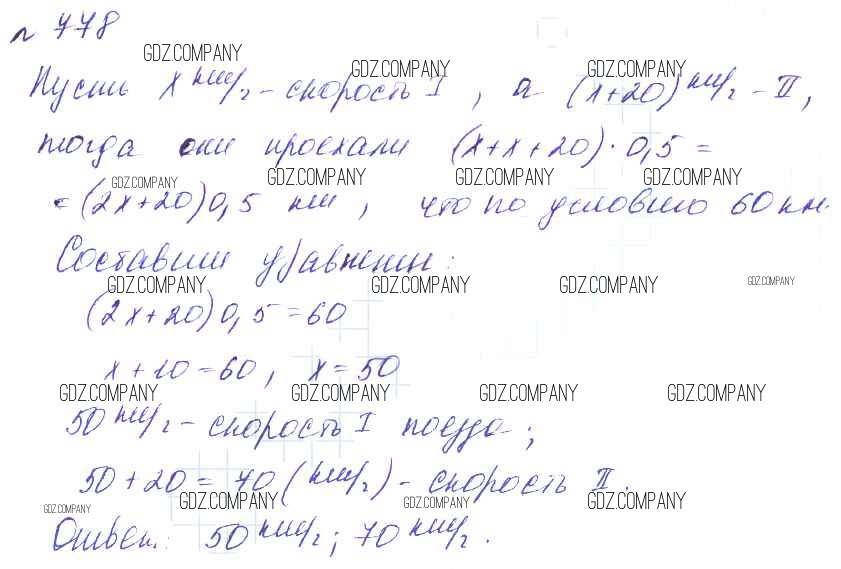 № 778
GDZ.COMPANY GDZ.COMPANY GDZ.COMPANY
Пусть x км/г - скорость I, а (x+20) км/г - II,
тогда они проехали (x+x+20)·0,5 =
GDZ.COMPANY GDZ.COMPANY GDZ.COMPANY GDZ.COMPANY
= (2x+20)0,5 км, что по условию 60 км.
Составим уравнение:
GDZ.COMPANY GDZ.COMPANY GDZ.COMPANY GDZ.COMPANY
(2x+20)0,5=60
x+10=60, x=50
GDZ.COMPANY GDZ.COMPANY GDZ.COMPANY GDZ.COMPANY
50 км/г - скорость I поезда;
50+20=70 (км/г) - скорость II.
GDZ.COMPANY GDZ.COMPANY GDZ.COMPANY GDZ.COMPANY
Ответ: 50 км/г; 70 км/г.